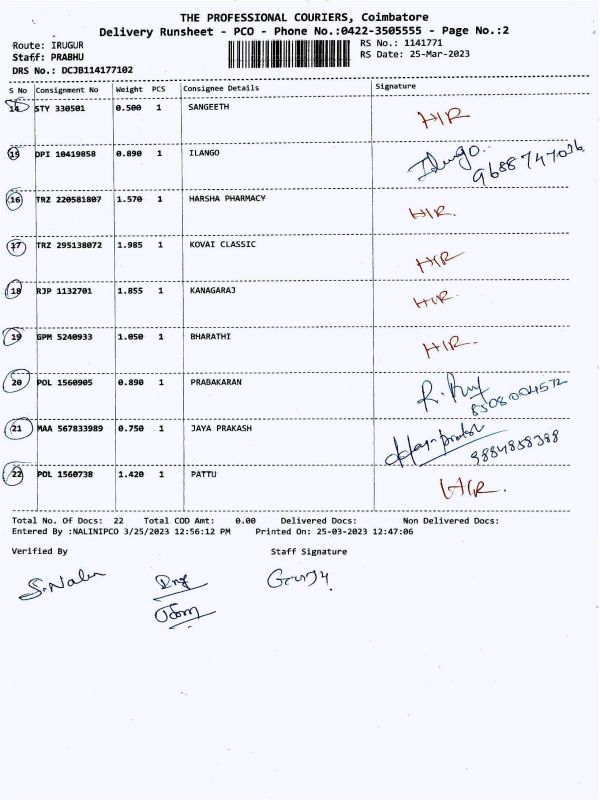 THE PROFESSIONAL COURIERS, Coimbatore
Delivery Runsheet - PCO - Phone No.:0422-3505555 - Page No.:2
Route: IRUGUR RS No.: 1141771
Staff: PRABHU RS Date: 25-Mar-2023
DRS No.: DCJB114177102
S No Consignment No Weight PCS Consignee Details Signature
14 STY 330501 0.500 1 SANGEETH HIR
15 DPI 10419858 0.890 1 ILANGO Ilango. 9688747026
16 TRZ 220581807 1.570 1 HARSHA PHARMACY HIR.
17 TRZ 295138072 1.985 1 KOVAI CLASSIC HIR
18 RJP 1132701 1.855 1 KANAGARAJ HIR.
19 GPM 5240933 1.050 1 BHARATHI HIR.
20 POL 1560905 0.890 1 PRABAKARAN 8508004572
21 MAA 567833989 0.750 1 JAYA PRAKASH 9884858388
22 POL 1560738 1.420 1 PATTU HIR.
Total No. Of Docs: 22 Total COD Amt: 0.00 Delivered Docs: Non Delivered Docs:
Entered By :NALINIPCO 3/25/2023 12:56:12 PM Printed On: 25-03-2023 12:47:06
Verified By Staff Signature
S.Nalin